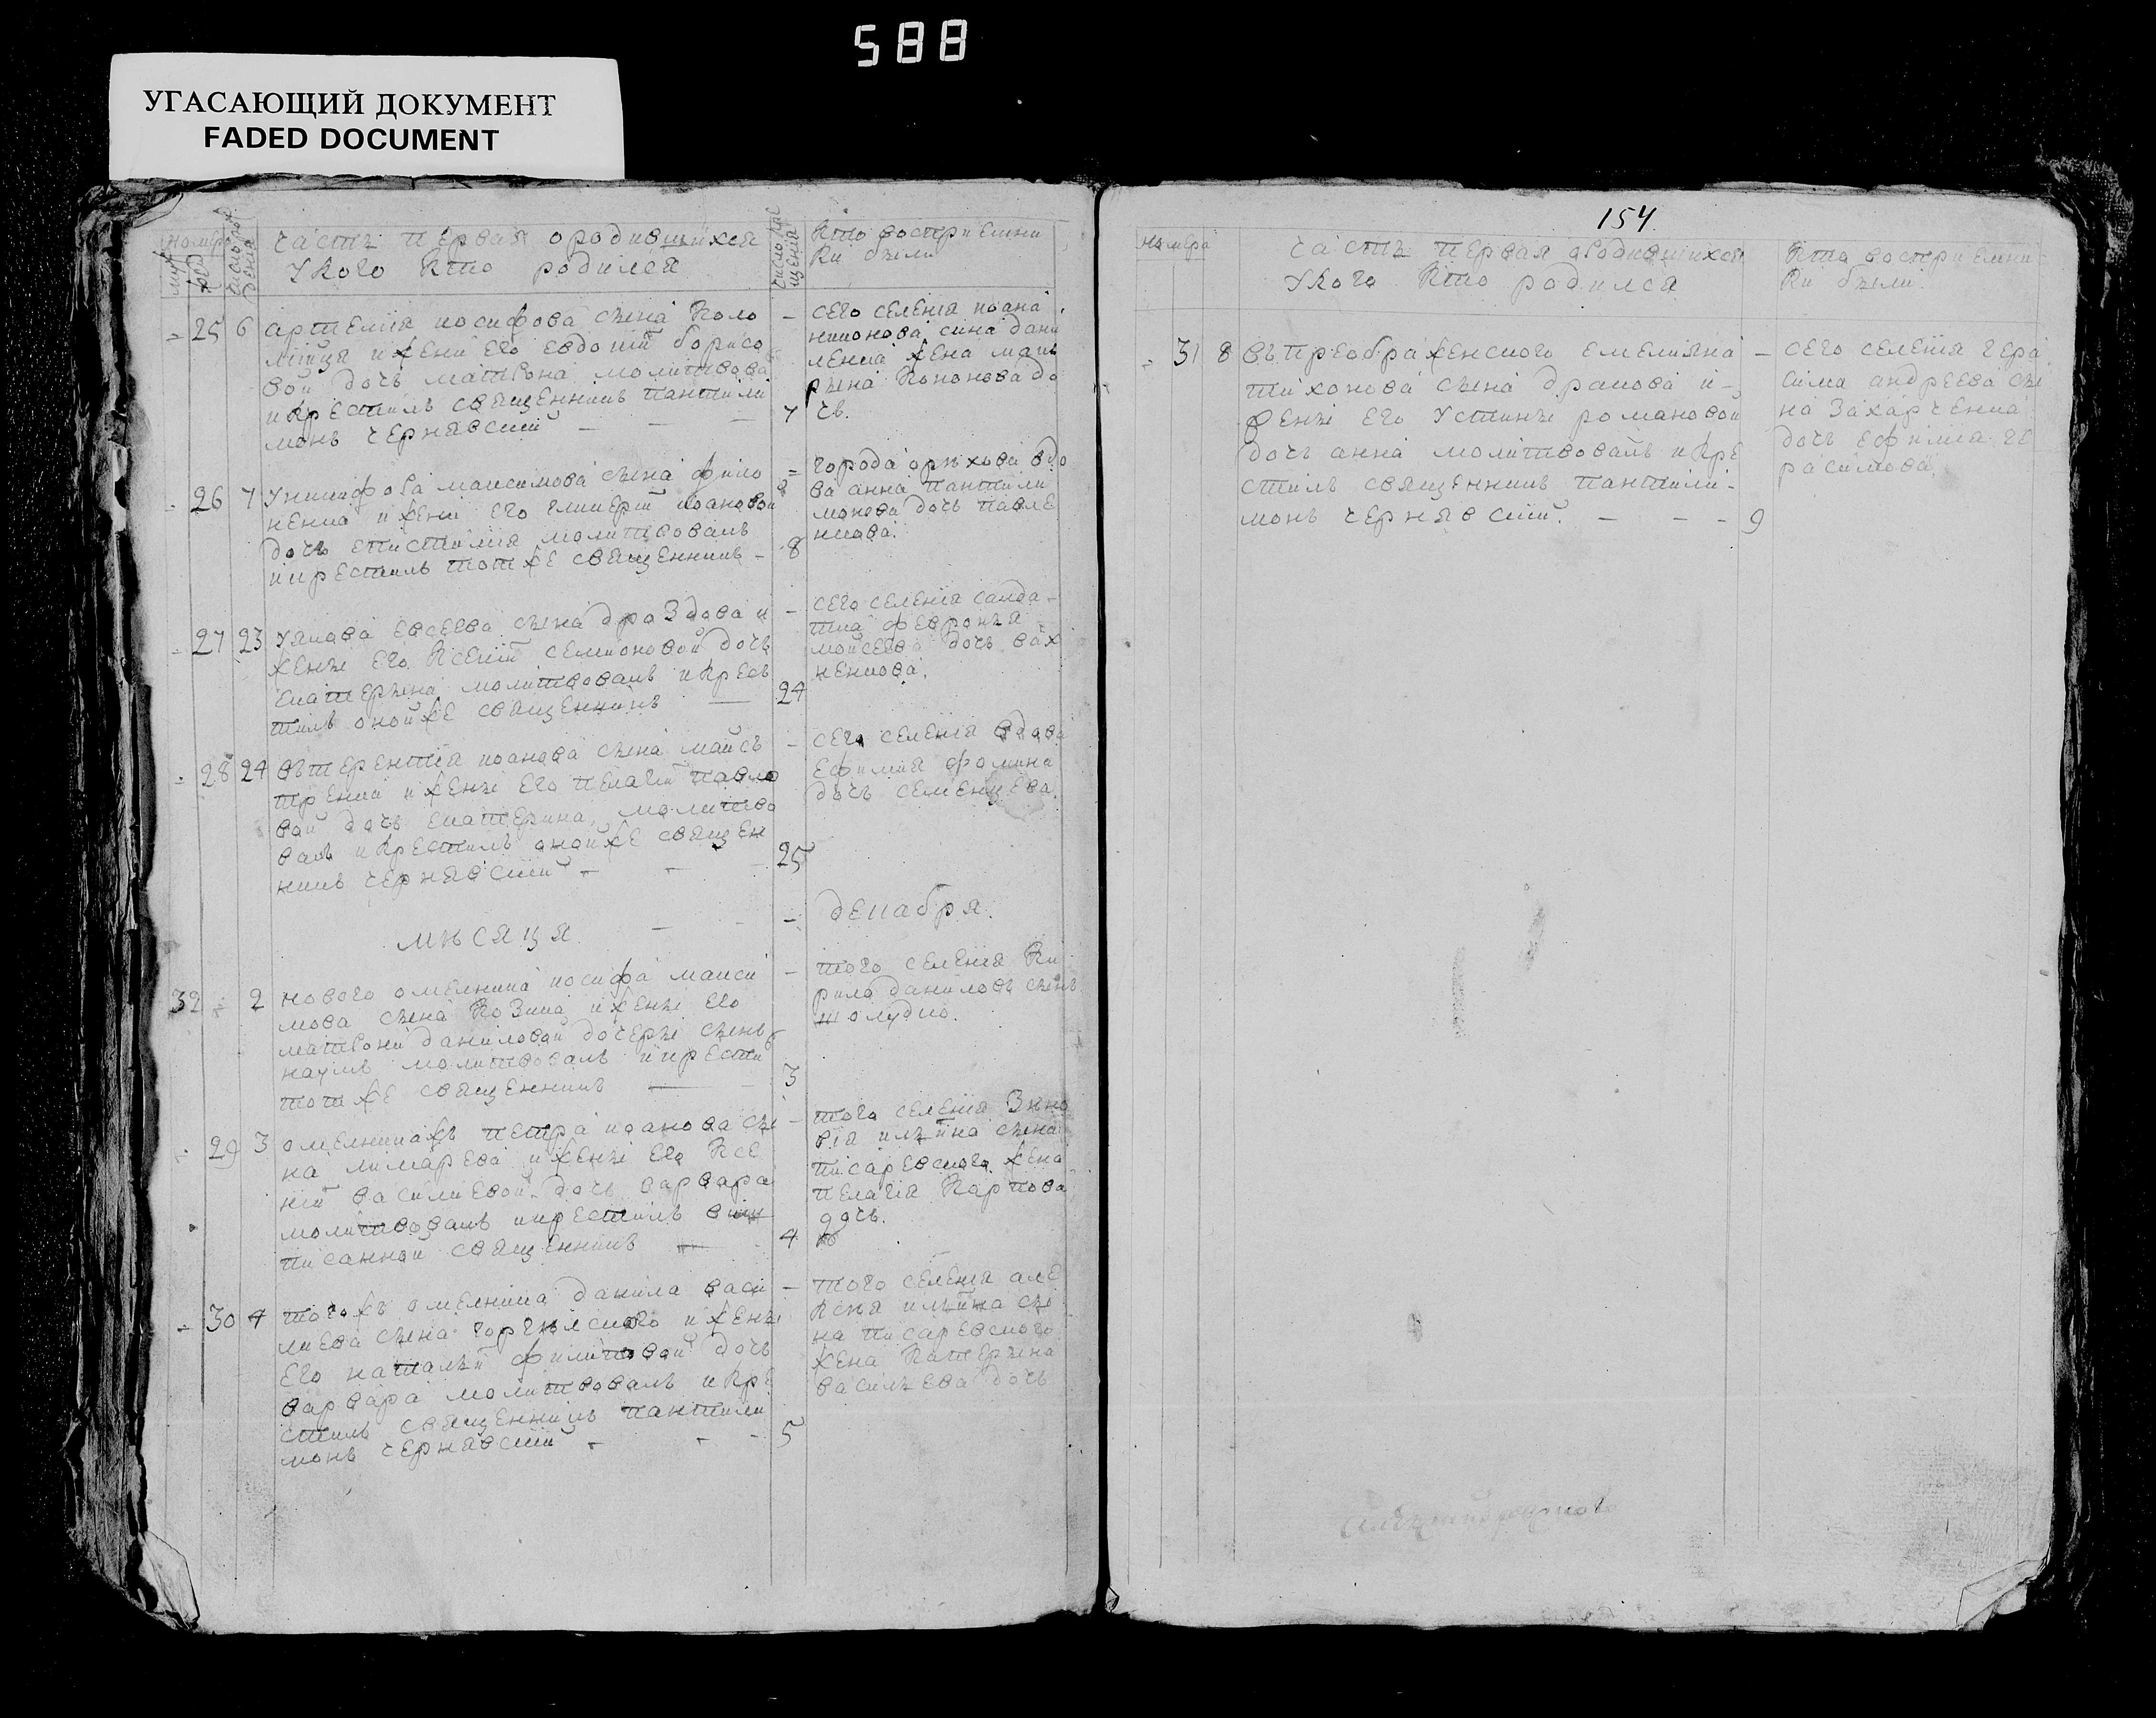 588
УГАСАЮЩИЙ ДОКУМЕНТ
FADED DOCUMENT
часть первая ородившихся
Укого кто родился
число кре
щенія
Кто восприемни
ки были
25 6 артемія иосифова сына Коло
мійця и жени его евдокіи борисо
вой дочь матрона молитвова
и крестилъ священникъ пантили
монъ чернявскій 7
сего селенія иоана
никонова сина дани
ленка жена мать
рына Кононова до
чь.
26 7 Уникифора максимова сына фило
ненка и жени его гликерїи иоановой
дочь епистимія молитвовалъ
и крестилъ тотже священникъ 8
города орѣхова вдо
ва анна пантили
монова дочь павле
нкова.
27 23 Уякова евсеева сына дроздова и
женъ его Ксеніи семионовой дочь
екатерына молитвовалъ и крес
тилъ онойже священникъ 24
сего селенія салда
тка февронія
мойсеева дочь вах
ненкова.
28 24 Втерентія иоанова сына майсъ
тренка и жены его пелагіи павло
вой дочь екатерина, молитво
валъ и крестилъ онойже священ
никъ чернявскій 25
сего селенія вдова
Ефимія фомина
дочь семенцева.
мѣсяця декабря.
32 2 нового омелника иосифа макси
мова сына Козика и жены его
матроны даниловой дочеры сынъ
наумъ молитвовалъ и крести
тотже священникъ 3
того селенія Ки
рило даниловъ сынъ
шолудко.
29 3 омелникажъ петра иоанова сы
на лимарева и жены его Ксе
ніи василиевой дочь варвара
молитвовалъ и крестилъ
писанной священникъ 4
того селенія Зино
вія илыина сына
писаревского жена
пелагія Карпова
дочь.
30 4 тогожъ омелника данила васи
лиева сына и жены
его наталыи филиповой дочь
варвара молитвовалъ и кре
стилъ священникъ пантили
монъ чернявскій 5
того селенія але
ксѣя илыина сы
на писаревского
жена Катерына
василыева дочь
154
часть первая ородившихся
Укого кто родился
Кто восприемни
ки были
31 8 въпреображенского емелияна
тихонова сына драмова и
женъ его Устины романовой
дочь анна молитвовалъ и кре
стилъ священникъ пантили
монъ чернявскій. 9
сего селенія гера
сима андреева сы
на Захарченка
дочь ефимія ге
расимова.